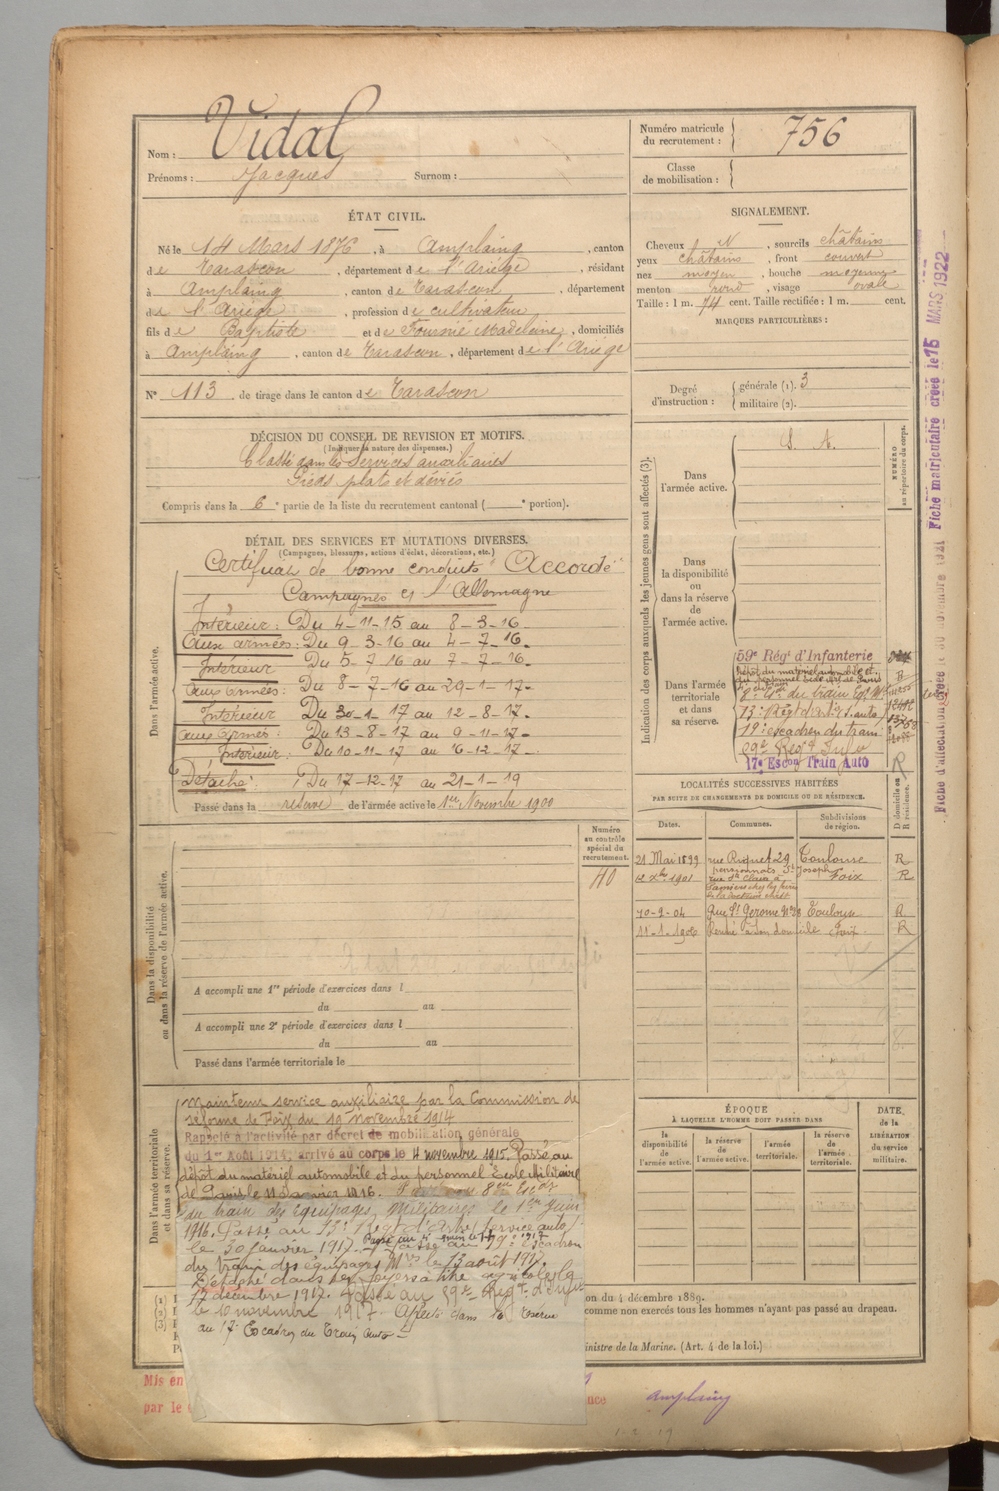 Nom : Vidal
Prénoms : Jacques Surnom :
Numéro matricule du recrutement : 756
Classe de mobilisation :
ÉTAT CIVIL.
Né le 14 Mars 1876, à Amplaing, canton
de Tarascon, département de l'Ariège, résidant
à Amplaing, canton de Tarascon, département
de l'Ariège, profession de cultivateur
fils de Baptiste et de Fournié Madeleine, domiciliés
à Amplaing, canton de Tarascon, département de l'Ariège
N° 113 de tirage dans le canton de Tarascon
SIGNALEMENT.
Cheveux N, sourcils châtains
yeux châtains, front couvert
nez moyen, bouche moyenne
menton rond, visage ovale
Taille : 1 m. 74 cent. Taille rectifiée : 1 m. cent.
MARQUES PARTICULIÈRES :
Degré d'instruction : générale (1). 3
militaire (2).
DÉCISION DU CONSEIL DE REVISION ET MOTIFS.
(Indiquer la nature des dispenses.)
Classé dans les Services auxiliaires
Pieds plats et déviés
Compris dans la 6e partie de la liste du recrutement cantonal ( e portion).
DÉTAIL DES SERVICES ET MUTATIONS DIVERSES.
(Campagnes, blessures, actions d'éclat, décorations, etc.)
Certificat de bonne conduite "Accordé"
Campagnes c/ l'Allemagne
Dans l'armée active.
Intérieur : Du 4-11-15 au 8-3-16
Aux armées : Du 9-3-16 au 4-7-16.
Intérieur Du 5-7-16 au 7-7-16.
aux Armées : Du 8-7-16 au 29-1-17.
Intérieur Du 30-1-17 au 12-8-17.
aux Armées : Du 13-8-17 au 9-11-17.
Intérieur : Du 10-11-17 au 16-12-17.
Détaché : Du 17-12-17 au 21-1-19
Passé dans la réserve de l'armée active le 1er Novembre 1900
Indication des corps auxquels les jeunes gens sont affectés (3).
NUMÉRO au répertoire du corps.
Dans l'armée active. S. A.
Dans la disponibilité ou dans la réserve de l'armée active.
Dans l'armée territoriale et dans sa réserve.
59e Régt d'Infanterie
Dépôt du matériel automobile et
du train Eqp. Mres
13e Régt d'Artie S. auto
19e escadron du train
59e Régt Infie
17e Escon Train Auto
LOCALITÉS SUCCESSIVES HABITÉES
PAR SUITE DE CHANGEMENTS DE DOMICILE OU DE RÉSIDENCE.
Dates. Communes. Subdivisions de région. D domicile ou R résidence.
21 Mai 1899 rue Riquet 29 Toulouse R
pensionnats St Joseph
12 Xbre 1901 rue Ste Claire à Foix R
Pamiers chez les frères
de la doctrine chrét.
10-9-04 Rue St Gerome N°28 Toulouse R
11-1-1906 Rentré à son domicile Foix R
Numéro au contrôle spécial du recrutement.
40
Dans la disponibilité ou dans la réserve de l'armée active.
A accompli une 1re période d'exercices dans l
du au
A accompli une 2e période d'exercices dans l
du au
Passé dans l'armée territoriale le
ÉPOQUE
À LAQUELLE L'HOMME DOIT PASSER DANS
la disponibilité de l'armée active.
la réserve de l'armée active.
l'armée territoriale.
la réserve de l'armée territoriale.
DATE. de la LIBÉRATION du service militaire.
Dans l'armée territoriale et dans sa réserve.
Maintenu service auxiliaire par la Commission de
réforme de Foix du 10 Novembre 1914
Rappelé à l'activité par décret de mobilisation générale
du 1er Août 1914, arrivé au corps le 4 novembre 1915. Passé au
dépôt du matériel automobile et du personnel Ecole Militaire
de Paris le 11 Janvier 1916.
du train des Equipages Militaires le 1er Juin
1916. Passé au 13e Régt d'Artie Service auto
le 30 janvier 1917. Passé au 19e Escadron
du train des équipages Mres le 13 août 1917.
Détaché dans ses foyers à titre agricole le
17 décembre 1917. Passé au 59e Régt d'Infie
le 10 novembre 1917. Affecté dans la réserve
au 17e Escadron du Train Auto
(1)
(2)
(3)
on du 4 décembre 1889.
comme non exercés tous les hommes n'ayant pas passé au drapeau.
inistre de la Marine. (Art. 4 de la loi.)
Mis en
par le
nce
Amplaing
Fiche matriculaire créée le 15 MARS 1922